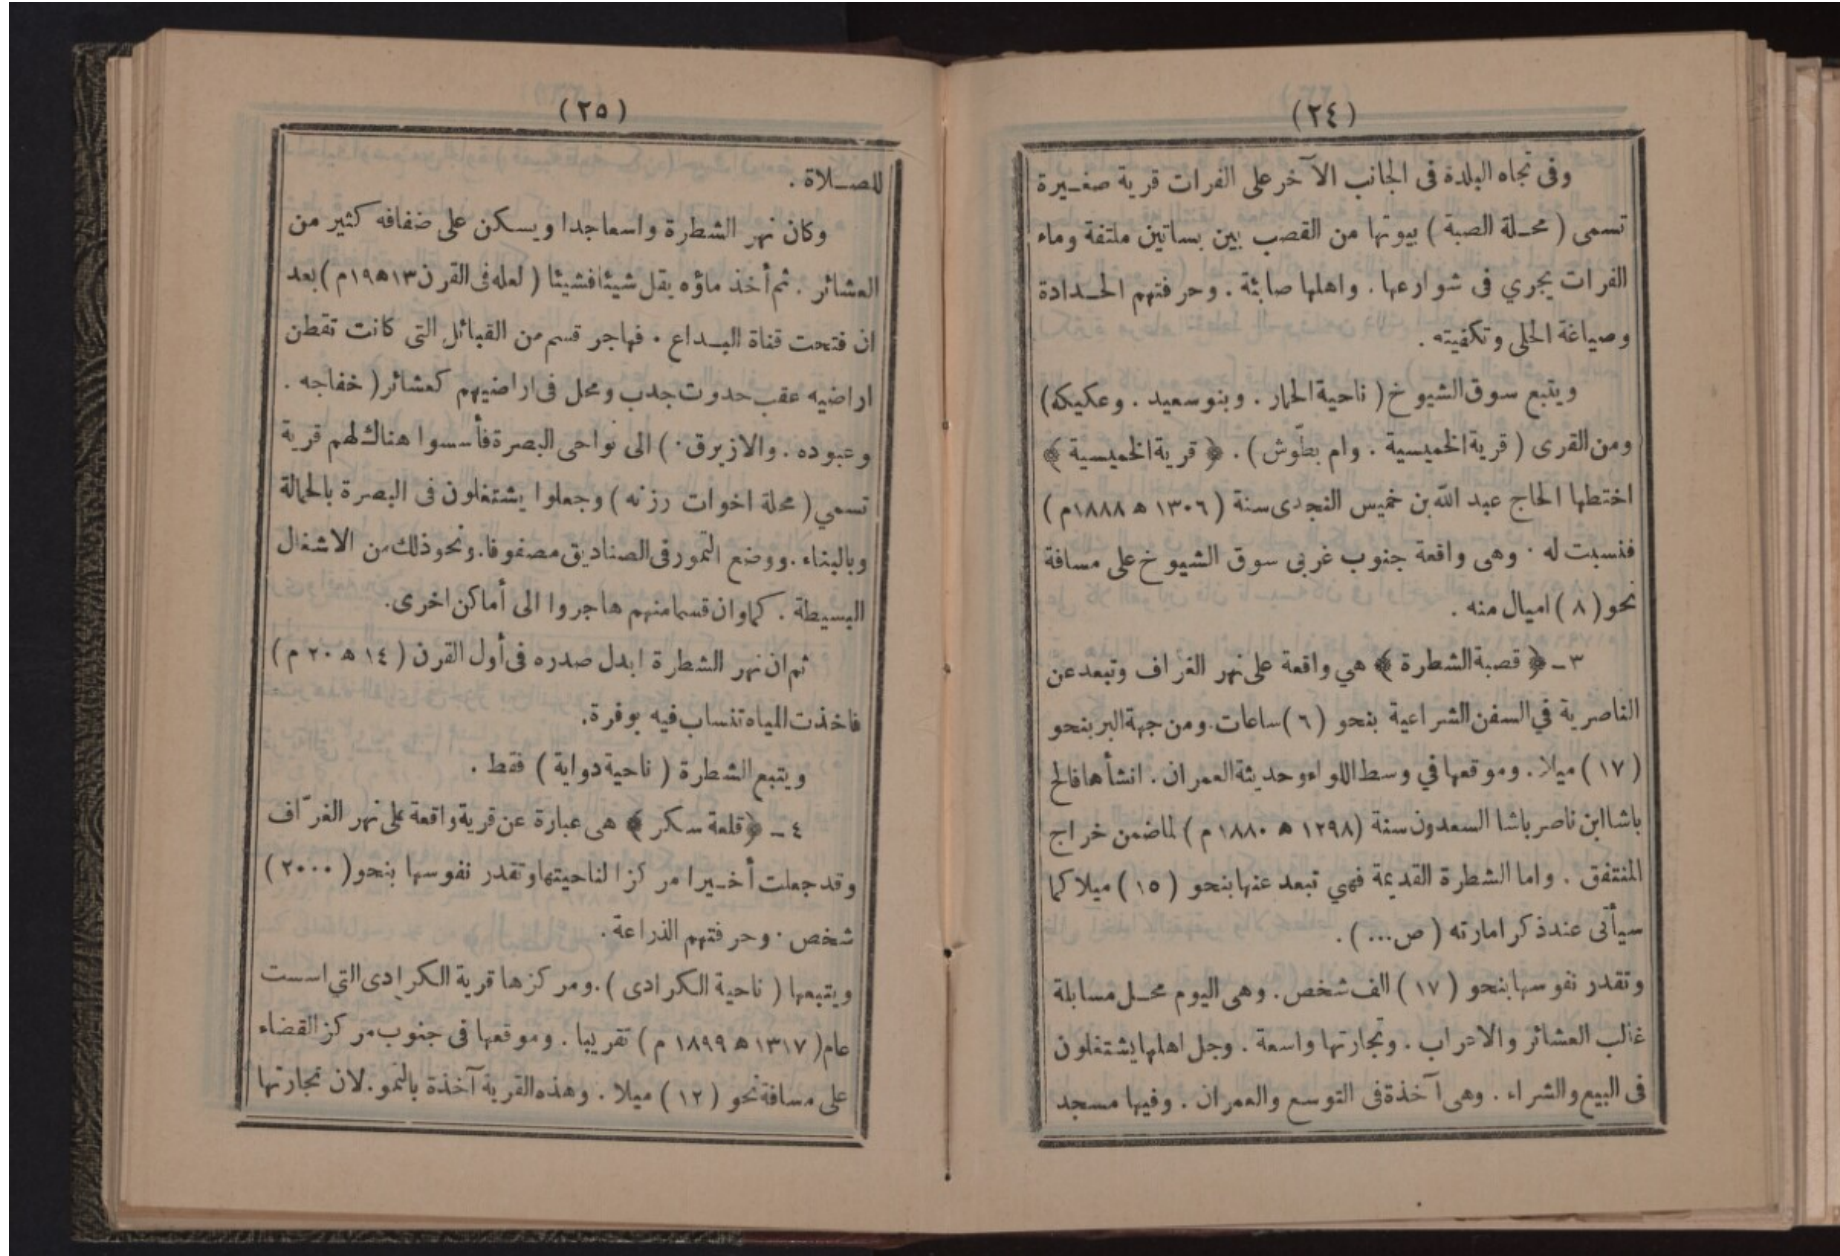 (٢٤)
وفى تجاه البلدة فى الجانب الآخر على الفرات قرية صغيرة
تسمى ( محلة الصبة ) بيوتها من القصب بين بساتين ملتفة وماء
الفرات يجري فى شوارعها . واهلها صابئة . وحرفتهم الحدادة
وصياغة الحلى وتكفيته .
ويتبع سوق الشيوخ ( ناحية الحمار . وبنو سعيد . وعكيكه )
ومن القرى ( قرية الخميسية . وام بطّوش ) . ﴿ قرية الخميسية ﴾
اختطها الحاج عبد الله بن خميس النجدى سنة ( ١٣٠٦ ه ١٨٨٨م )
فنسبت له . وهى واقعة جنوب غربى سوق الشيوخ على مسافة
نحو ( ٨ ) اميال منه .
٣ ـ ﴿ قصبة الشطرة ﴾ هي واقعة على نهر الغراف وتبعد عن
الناصرية في السفن الشراعية بنحو ( ٦ ) ساعات . ومن جهة البر بنحو
( ١٧ ) ميلا . وموقعها في وسط اللواء وحديثة العمران . انشأها فالح
باشا ابن ناصر باشا السعدون سنة ( ١٢٩٨ ه ١٨٨٠ م ) لما ضمن خراج
المنتفق . واما الشطرة القديمة فهي تبعد عنها بنحو ( ١٥ ) ميلا كما
سيأتى عند ذكر امارته ( ص ... ) .
وتقدر نفوسها بنحو ( ١٧ ) الف شخص . وهى اليوم محل مسابلة
غالب العشائر والاعراب . وتجارتها واسعة . وجل اهلها يشتغلون
فى البيع والشراء . وهى آخذة فى التوسع والعمران . وفيها مسجد
(٢٥)
للصلاة .
وكان نهر الشطرة واسعا جدا ويسكن على ضفافه كثير من
العشائر . ثم أخذ ماؤه يقل شيئا فشيئا ( لعله فى القرن ١٣ه ١٩م ) بعد
ان فتحت قناة البداع . فهاجر قسم من القبائل التى كانت تقطن
اراضيه عقب حدوث جدب ومحل فى اراضيهم كعشائر ( خفاجه .
وعبوده . والازيرق . ) الى نواحى البصرة فأسسوا هناك لهم قرية
تسمي ( محلة اخوات رزنه ) وجعلوا يشتغلون فى البصرة بالحمالة
وبالبناء . ووضع التمور فى الصناديق مصفوفا . ونحو ذلك من الاشغال
البسيطة . كما وان قسما منهم هاجروا الى أماكن اخرى .
ثم ان نهر الشطرة ابدل صدره فى أول القرن ( ١٤ ه ٢٠ م )
فاخذت المياه تنساب فيه بوفرة .
ويتبع الشطرة ( ناحية دواية ) فقط .
٤ ـ ﴿ قلعة سكر ﴾ هى عبارة عن قرية واقعة على نهر الغرّاف
وقد جعلت أخيرا مركزا لناحيتها وتقدر نفوسها بنحو ( ٢٠٠٠ )
شخص . وحرفتهم الذراعة .
ويتبعها ( ناحية الكرادى ) . ومركزها قرية الكرادى التي اسست
عام ( ١٣١٧ ه ١٨٩٩ م ) تقريبا . وموقعها فى جنوب مركز القضاء
على مسافة نحو ( ١٢ ) ميلا . وهذه القرية آخذة بالنمو . لان تجارتها